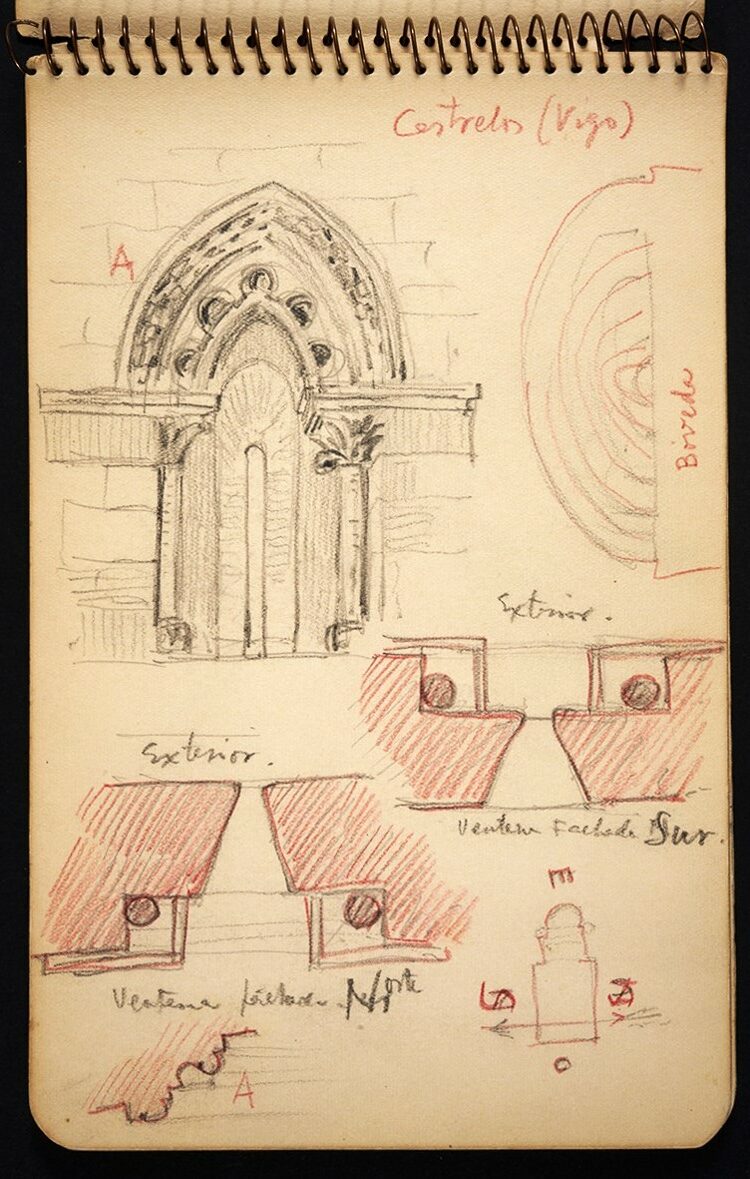 Castrelos (Vigo)
A
Bóveda
Exterior.
Exterior.
Ventana Fachada Sur.
E
Ventana fachada Norte
S
N
O
A